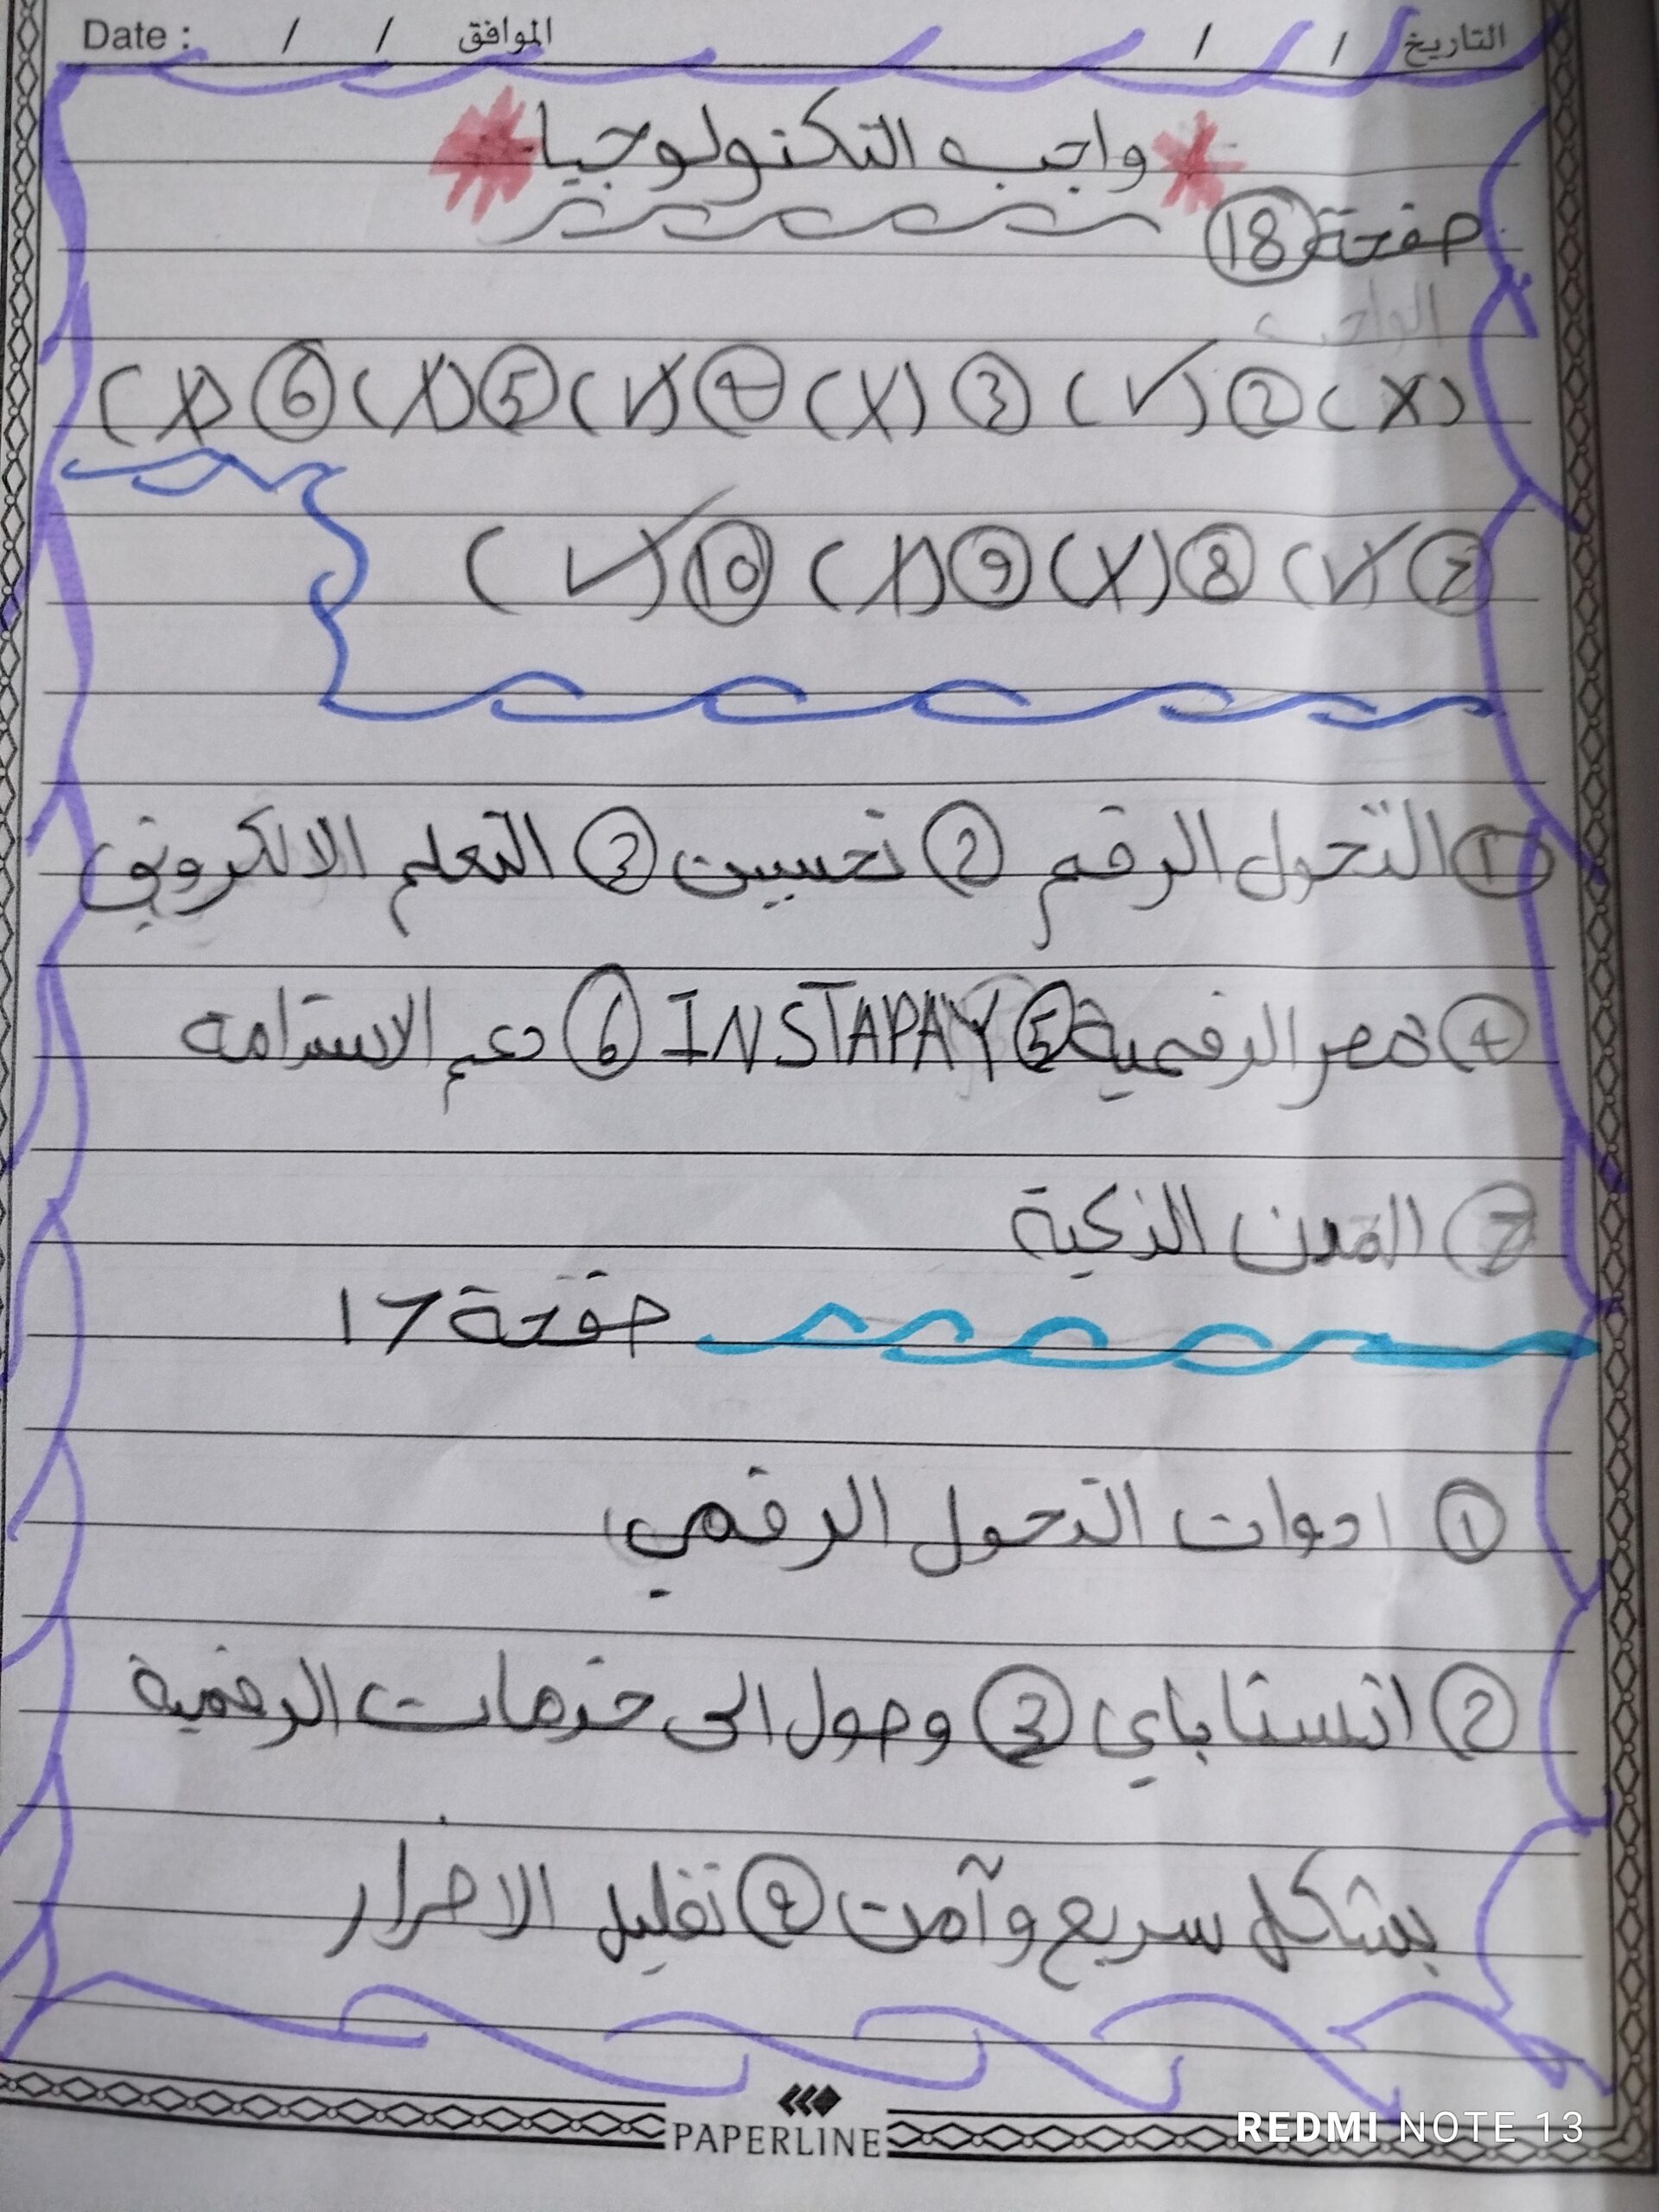 التاريخ / / الموافق / / Date :
واجب التكنولوجيا
صفحة 18
الواجب
(X) 2 (✓) 3 (X) 4 (✓) 5 (X) 6 (X)
7 (✓) 8 (X) 9 (X) 10 (✓)
1 التحول الرقم 2 تحسين 3 التعلم الالكروني
4 مصر الرقمية 5 INSTAPAY 6 دعم الاستدامه
7 المدن الذكية
صفحة 17
1 ادوات التحول الرقمي
2 انستا باي 3 وصول الى خدمات الرقمية
بشكل سريع وآمن 4 تقليل الاضرار
PAPERLINE
REDMI NOTE 13